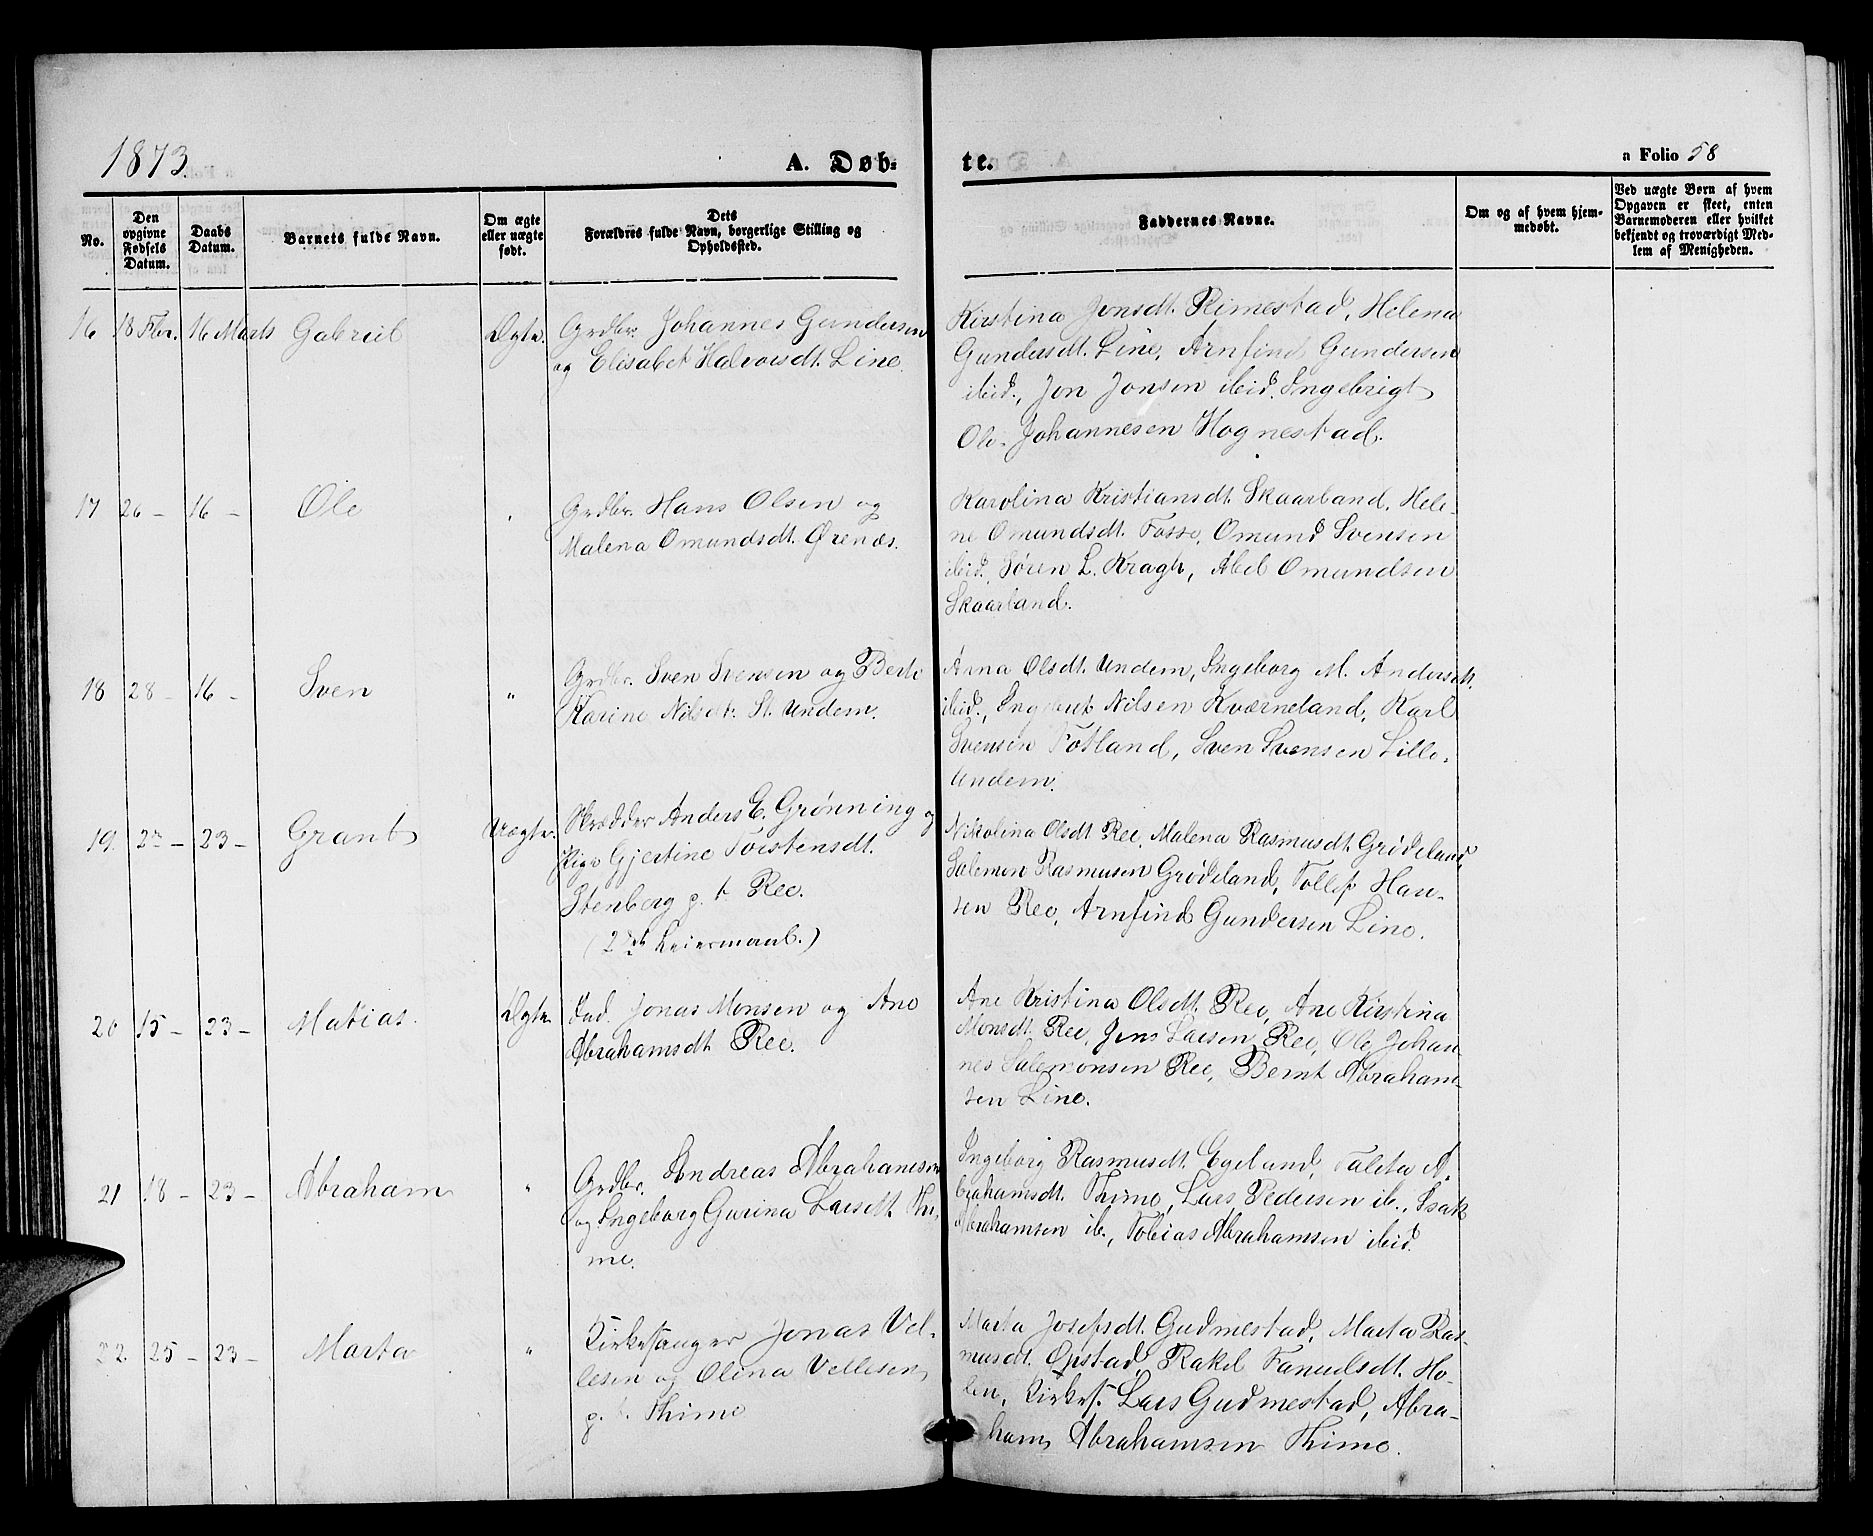 1873.
A. Døb-
te.
a Folio 58
No.
Den opgivne Fødsels Datum.
Daabs Datum.
Barnets fulde Navn.
Om ægte eller uægte født.
Dets Forældres fulde Navn, borgerlige Stilling og Opholdssted.
Faddernes Navne.
Om og af hvem hjem-
medøbt.
Ved uægte Børn af hvem
Opgaven er skeet, enten
Barnemoderen eller hvilket
bekjendt og troværdigt Med-
lem af Menigheden.
16 18 Fbr. 16 Marts Gabriel Ægte. Grdbr. Johannes Gundersen
og Elisabet Halvorsdt. Line.
Kirstina Jonsdt. Rimestad, Helena
Gundersdt. Line, Arnfind Gundersen
ibid., Jon Jonsen ibid. Ingebrigt
Ole Johannesen Hognestad.
17 26 - 16 - Ole Grdbr. Hans Olsen og
Malena Omundsdt. Ørenæs.
Karolina Kristiansdt. Skaarland, Hele-
ne Omundsdt. Fosse, Omund Svensen
ibid., Søren L. Kragh, Abel Omundsen
Skaarland.
18 28 - 16 - Sven " Grdbr. Sven Svensen og Berte
Karine Nilsdt. St. Undem.
Anna Olsdt. Undem, Ingeborg M. Andersdt.
ibid., Ingebret Nilsen Kværneland, Karl
Svensen Fotland, Sven Svensen Lille-
Undem.
19. 27 - 23 - Grant Uægte. Skrædder Anders E. Grønning og
Pige Gjertine Torstensdt.
Stenberg g. t. Ree.
(2det Leiermaal.)
Nikolina Olsdt Ree, Malena Rasmusdt. Grødeland,
Salemon Rasmusen Grødeland, Tollef Han-
sen Ree, Arnfind Gundersen Line.
20 15 - 23 - Matias. Ægte. Ind. Jonas Monsen og Ane
Abrahamsdt. Ree.
Ane Kristina Olsdt. Ree, Ane Kirstina
Monsdt. Ree, Jens Larsen Ree, Ole Johan-
nes Salemonsen Ree, Bernt Abraham-
sen Line.
21 18 - 23 - Abraham " Grdbr. Andreas Abrahamsen
og Ingeborg Gurina Larsdt. Thi-
me.
Ingeborg Rasmusdt. Egeland, Taleta A-
brahamsdt. Thime, Lars Pedersen ib., Isak
Abrahamsen ib., Tobias Abrahamsen ibid.
22 25 - 23 - Marta " Kirkesanger Jonas Vel-
lesen og Olina Vellesen,
g. t. Thime
Marta Josefsdt. Gudmestad, Marta Ras-
musdt. Opstad, Rakel Tanulsdt. Ho-
len, Kirkes. Lars Gudmestad, Abra-
ham Abrahamsen Thime.